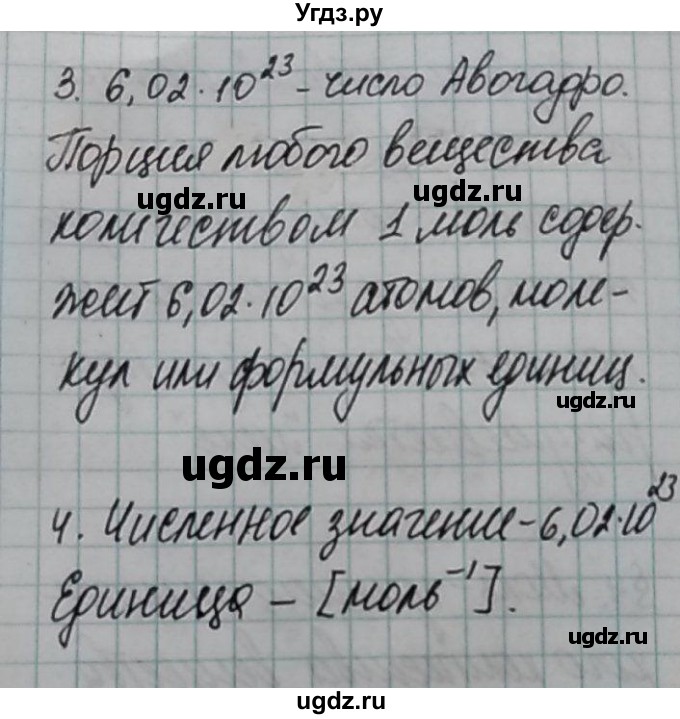 Угдз.ру
3. 6,02·10²³ - число Авогадро.
Порция любого вещества
ugdz.ru ugdz.ru
количеством 1 моль содер-
жит 6,02·10²³ атомов, моле-
кул или формульных единиц.
ugdz.ru ugdz.ru
ugdz.ru
4. Численное значение - 6,02·10²³
Единица - [моль⁻¹].
ugdz.ru
ugdz.ru